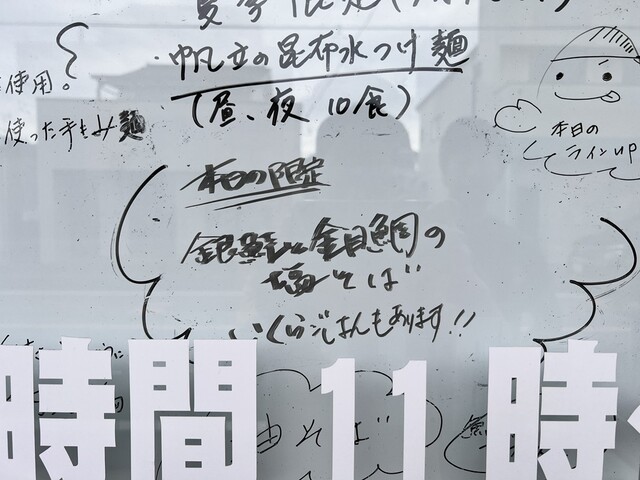 帆立の昆布水つけ麺
(昼、夜 10食)
使用。
使った手もみ麺
本日の
ラインup
本日の限定
銀鮭と金目鯛の
塩そば
いくらごはんもあります!!
時間 11時
そば